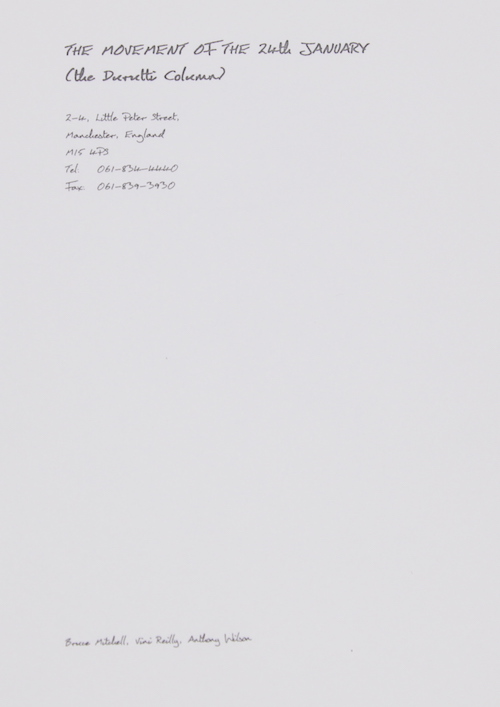 THE MOVEMENT OF THE 24th JANUARY
(the Durutti Column)
2-4, Little Peter Street,
Manchester, England
M15 4PS
Tel. 061-834-4440
Fax 061-839-3930
Bruce Mitchell, Vini Reilly, Anthony Wilson